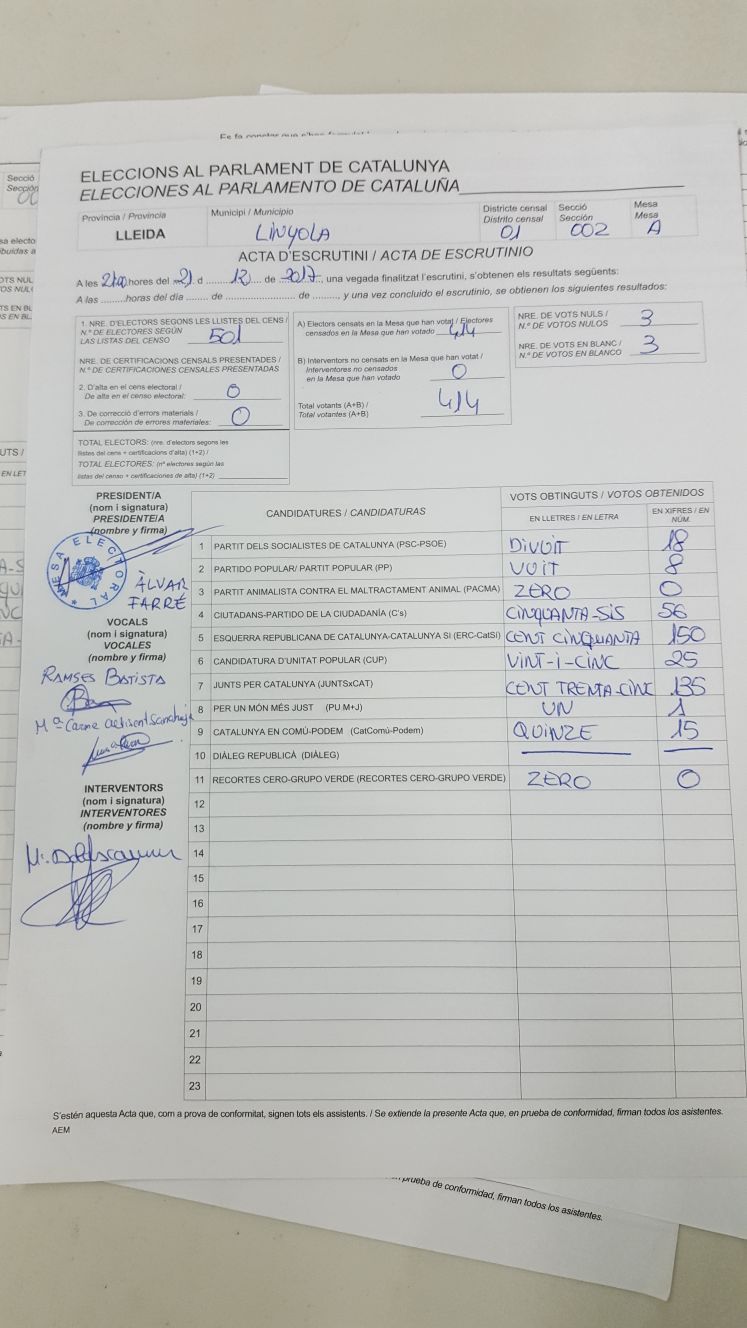 Es fa constar que s'han
Secció
Sección
sa electo
ibuidas a
OTS NUL
OS NULO
TS EN BL
S EN BL
UTS /
EN LET
ELECCIONS AL PARLAMENT DE CATALUNYA
ELECCIONES AL PARLAMENTO DE CATALUÑA
Província / Provincia Municipi / Municipio Districte censal Secció Mesa
Distrito censal Sección Mesa
LLEIDA LINYOLA 01 002 A
ACTA D'ESCRUTINI / ACTA DE ESCRUTINIO
A les 21:00 hores del 21 d 12 de 2017, una vegada finalitzat l'escrutini, s'obtenen els resultats següents:
A las .........horas del día ....... de ...................... de ........., y una vez concluido el escrutinio, se obtienen los siguientes resultados:
1. NRE. D'ELECTORS SEGONS LES LLISTES DEL CENS /
N.º DE ELECTORES SEGÚN
LAS LISTAS DEL CENSO 501
NRE. DE CERTIFICACIONS CENSALS PRESENTADES /
N.º DE CERTIFICACIONES CENSALES PRESENTADAS
2. D'alta en el cens electoral /
De alta en el censo electoral: 0
3. De correcció d'errors materials /
De corrección de errores materiales: 0
TOTAL ELECTORS: (nre. d'electors segons les
llistes del cens + certificacions d'alta) (1+2) /
TOTAL ELECTORES: (nº electores según las
listas del censo + certificaciones de alta) (1+2)
A) Electors censats en la Mesa que han votat / Electores
censados en la Mesa que han votado 414
B) Interventors no censats en la Mesa que han votat /
Interventores no censados
en la Mesa que han votado 0
Total votants (A+B) /
Total votantes (A+B) 414
NRE. DE VOTS NULS /
N.º DE VOTOS NULOS 3
NRE. DE VOTS EN BLANC /
N.º DE VOTOS EN BLANCO 3
PRESIDENT/A
(nom i signatura)
PRESIDENTE/A
(nombre y firma)
MESA ELECTORAL
ÀLVAR
FARRÉ
VOCALS
(nom i signatura)
VOCALES
(nombre y firma)
RAMSES BATISTA
Mª Carme
INTERVENTORS
(nom i signatura)
INTERVENTORES
(nombre y firma)
CANDIDATURES / CANDIDATURAS VOTS OBTINGUTS / VOTOS OBTENIDOS
EN LLETRES / EN LETRA EN XIFRES / EN NÚM.
1 PARTIT DELS SOCIALISTES DE CATALUNYA (PSC-PSOE) DIVUIT 18
2 PARTIDO POPULAR/ PARTIT POPULAR (PP) VUIT 8
3 PARTIT ANIMALISTA CONTRA EL MALTRACTAMENT ANIMAL (PACMA) ZERO 0
4 CIUTADANS-PARTIDO DE LA CIUDADANÍA (C's) CINQUANTA-SIS 56
5 ESQUERRA REPUBLICANA DE CATALUNYA-CATALUNYA SÍ (ERC-CatSí) CENT CINQUANTA 150
6 CANDIDATURA D'UNITAT POPULAR (CUP) VINT-I-CINC 25
7 JUNTS PER CATALUNYA (JUNTSxCAT) CENT TRENTA-CINC 135
8 PER UN MÓN MÉS JUST (PU M+J) UN 1
9 CATALUNYA EN COMÚ-PODEM (CatComú-Podem) QUINZE 15
10 DIÀLEG REPUBLICÀ (DIÀLEG)
11 RECORTES CERO-GRUPO VERDE (RECORTES CERO-GRUPO VERDE) ZERO 0
12
13
14
15
16
17
18
19
20
21
22
23
S'estén aquesta Acta que, com a prova de conformitat, signen tots els assistents. / Se extiende la presente Acta que, en prueba de conformidad, firman todos los asistentes.
AEM
prueba de conformidad, firman todos los asistentes.